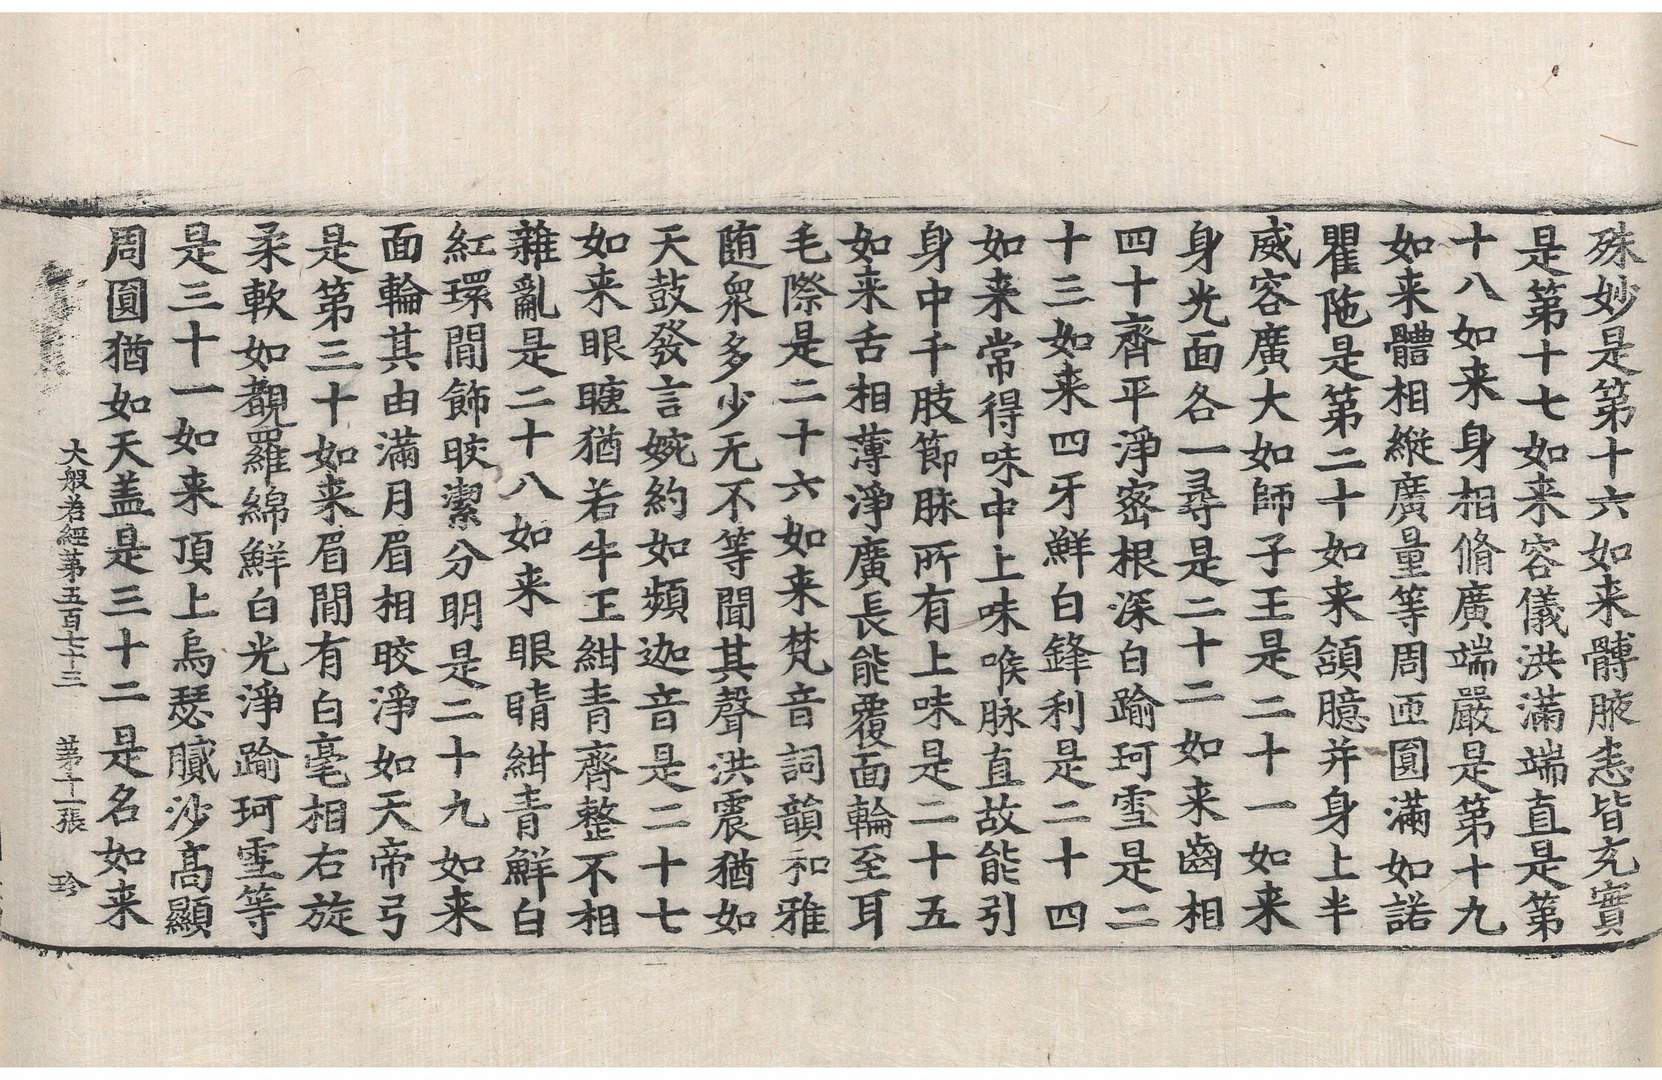 殊妙是第十六如来髆腋悉皆充實
是第十七如来容儀洪滿端直是第
十八如来身相脩廣端嚴是第十九
如来體相縱廣量等周匝圓滿如諾
瞿陁是第二十如来頷臆并身上半
威容廣大如師子王是二十一如来
身光面各一尋是二十二如来齒相
四十齊平淨密根深白踰珂雪是二
十三如来四牙鮮白鋒利是二十四
如来常得味中上味喉脉直故能引
身中千肢節脉所有上味是二十五
如来舌相薄淨廣長能覆面輪至耳
毛際是二十六如来梵音詞韻和雅
随衆多少无不等聞其聲洪震猶如
天鼓發言婉約如頻迦音是二十七
如来眼睫猶若牛王紺青齊整不相
雜亂是二十八如来眼睛紺青鮮白
紅環間飾皎潔分明是二十九如来
面輪其由滿月眉相皎淨如天帝弓
是第三十如来眉間有白毫相右旋
柔軟如覩羅綿鮮白光淨踰珂雪等
是三十一如来頂上烏瑟膩沙高顯
周圓猶如天盖是三十二是名如来
大般若經第五百七十三 第十一張 珍